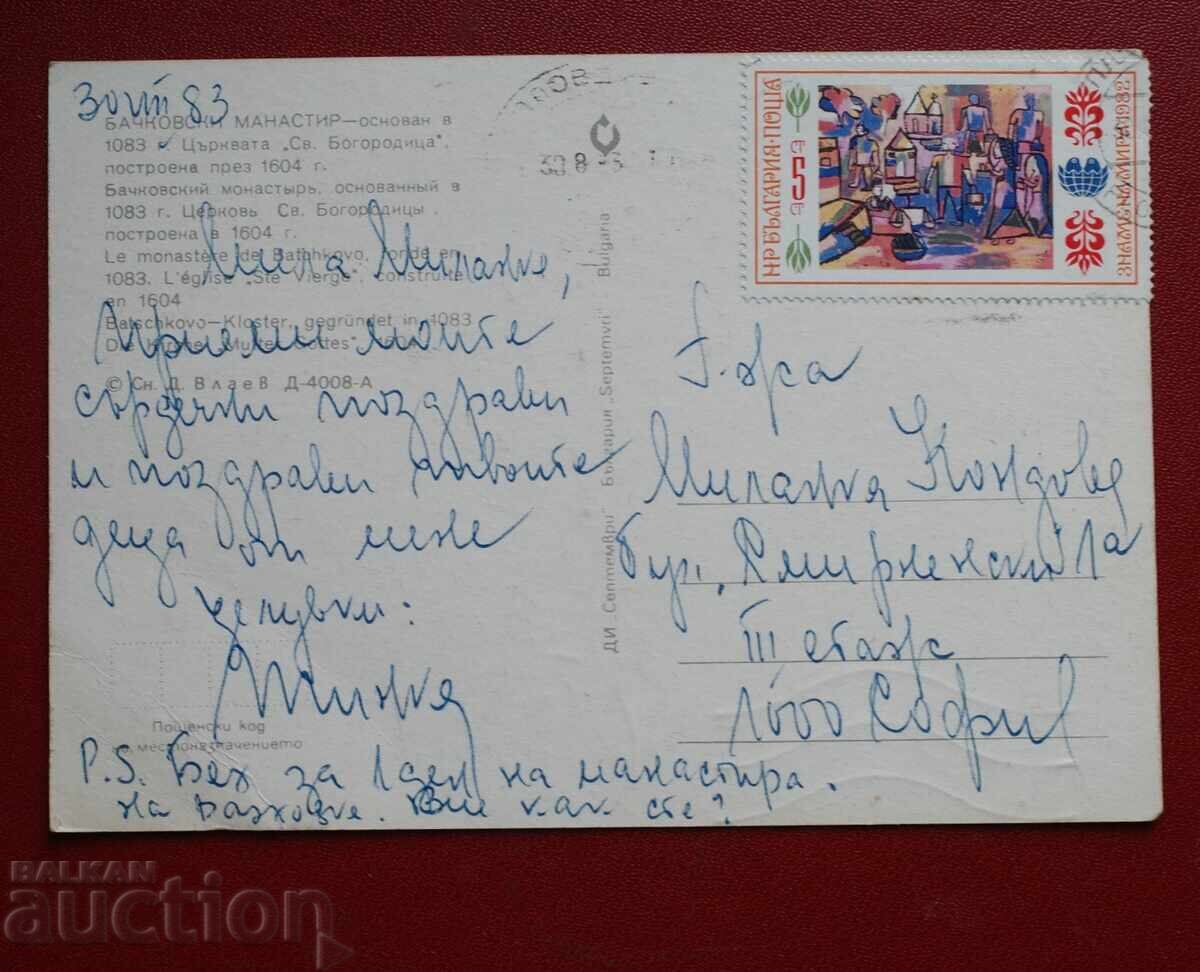 30 VIII 83
БАЧКОВСКИ МАНАСТИР—основан в
1083 Църквата „Св. Богородица",
построена през 1604 г.
Бачковский монастырь, основанный в
1083 г. Церковь Св. Богородицы,
построена в 1604 г.
Le monastère de Batchkovo, fondé en
1083. L'église „Ste Vierge", construite
en 1604
Batschkovo—Kloster, gegründet in 1083
Die Kirche „Mutter Gottes"
© Сн. Д. Влаев Д-4008-А
Мила Миланке,
Приеми моите
сърдечни поздрави
и поздрави твоите
деца от мене
целувки:
Минка
Пощенски код
местоназначението
P.S. Бях за 1 ден на манастира.
на разходка. Вие как сте?
ДИ „Септември" България „Septemvri" - Bulgaria
30.8
НР БЪЛГАРИЯ·ПОЩА
5 СТ
ЗНАМЕ НА МИРА 1982
Г-жа
Миланка Кондова
бул. Смирненски 1а
III етаж
1000 София
BALKAN
auction